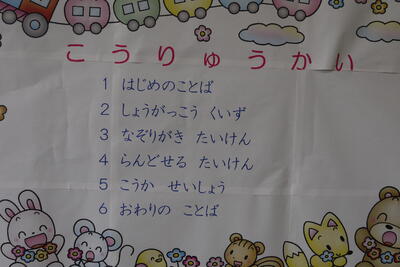 こうりゅうかい
1 はじめのことば
2 しょうがっこう くいず
3 なぞりがき たいけん
4 らんどせる たいけん
5 こうか せいしょう
6 おわりの ことば